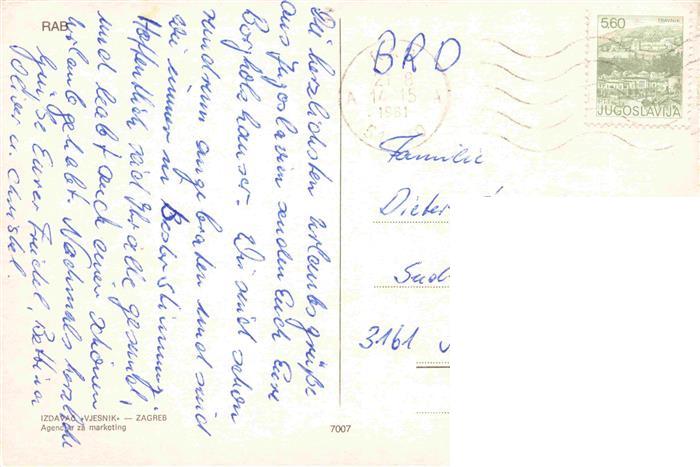 RAB
Die herzlichsten Urlaubsgrüße
aus Jugoslavien senden Euch Eure
Borgholzhauser. Wir sind schon
rundrum angebraten und sind
wie immer in Bester Stimmung.
Hoffentlich seid Ihr alle gesund,
und habt auch einen schönen
Urlaub gehabt. Nochmals herzliche
Grüße Eurer Friedel, Bettina
Volker u. Christel.
IZDAVAČ »VJESNIK« — ZAGREB
Agencija za marketing
7007
BRD
14-15
1981
5.60
TRAVNIK
JUGOSLAVIJA
Familie
Dieter
Sud
3161